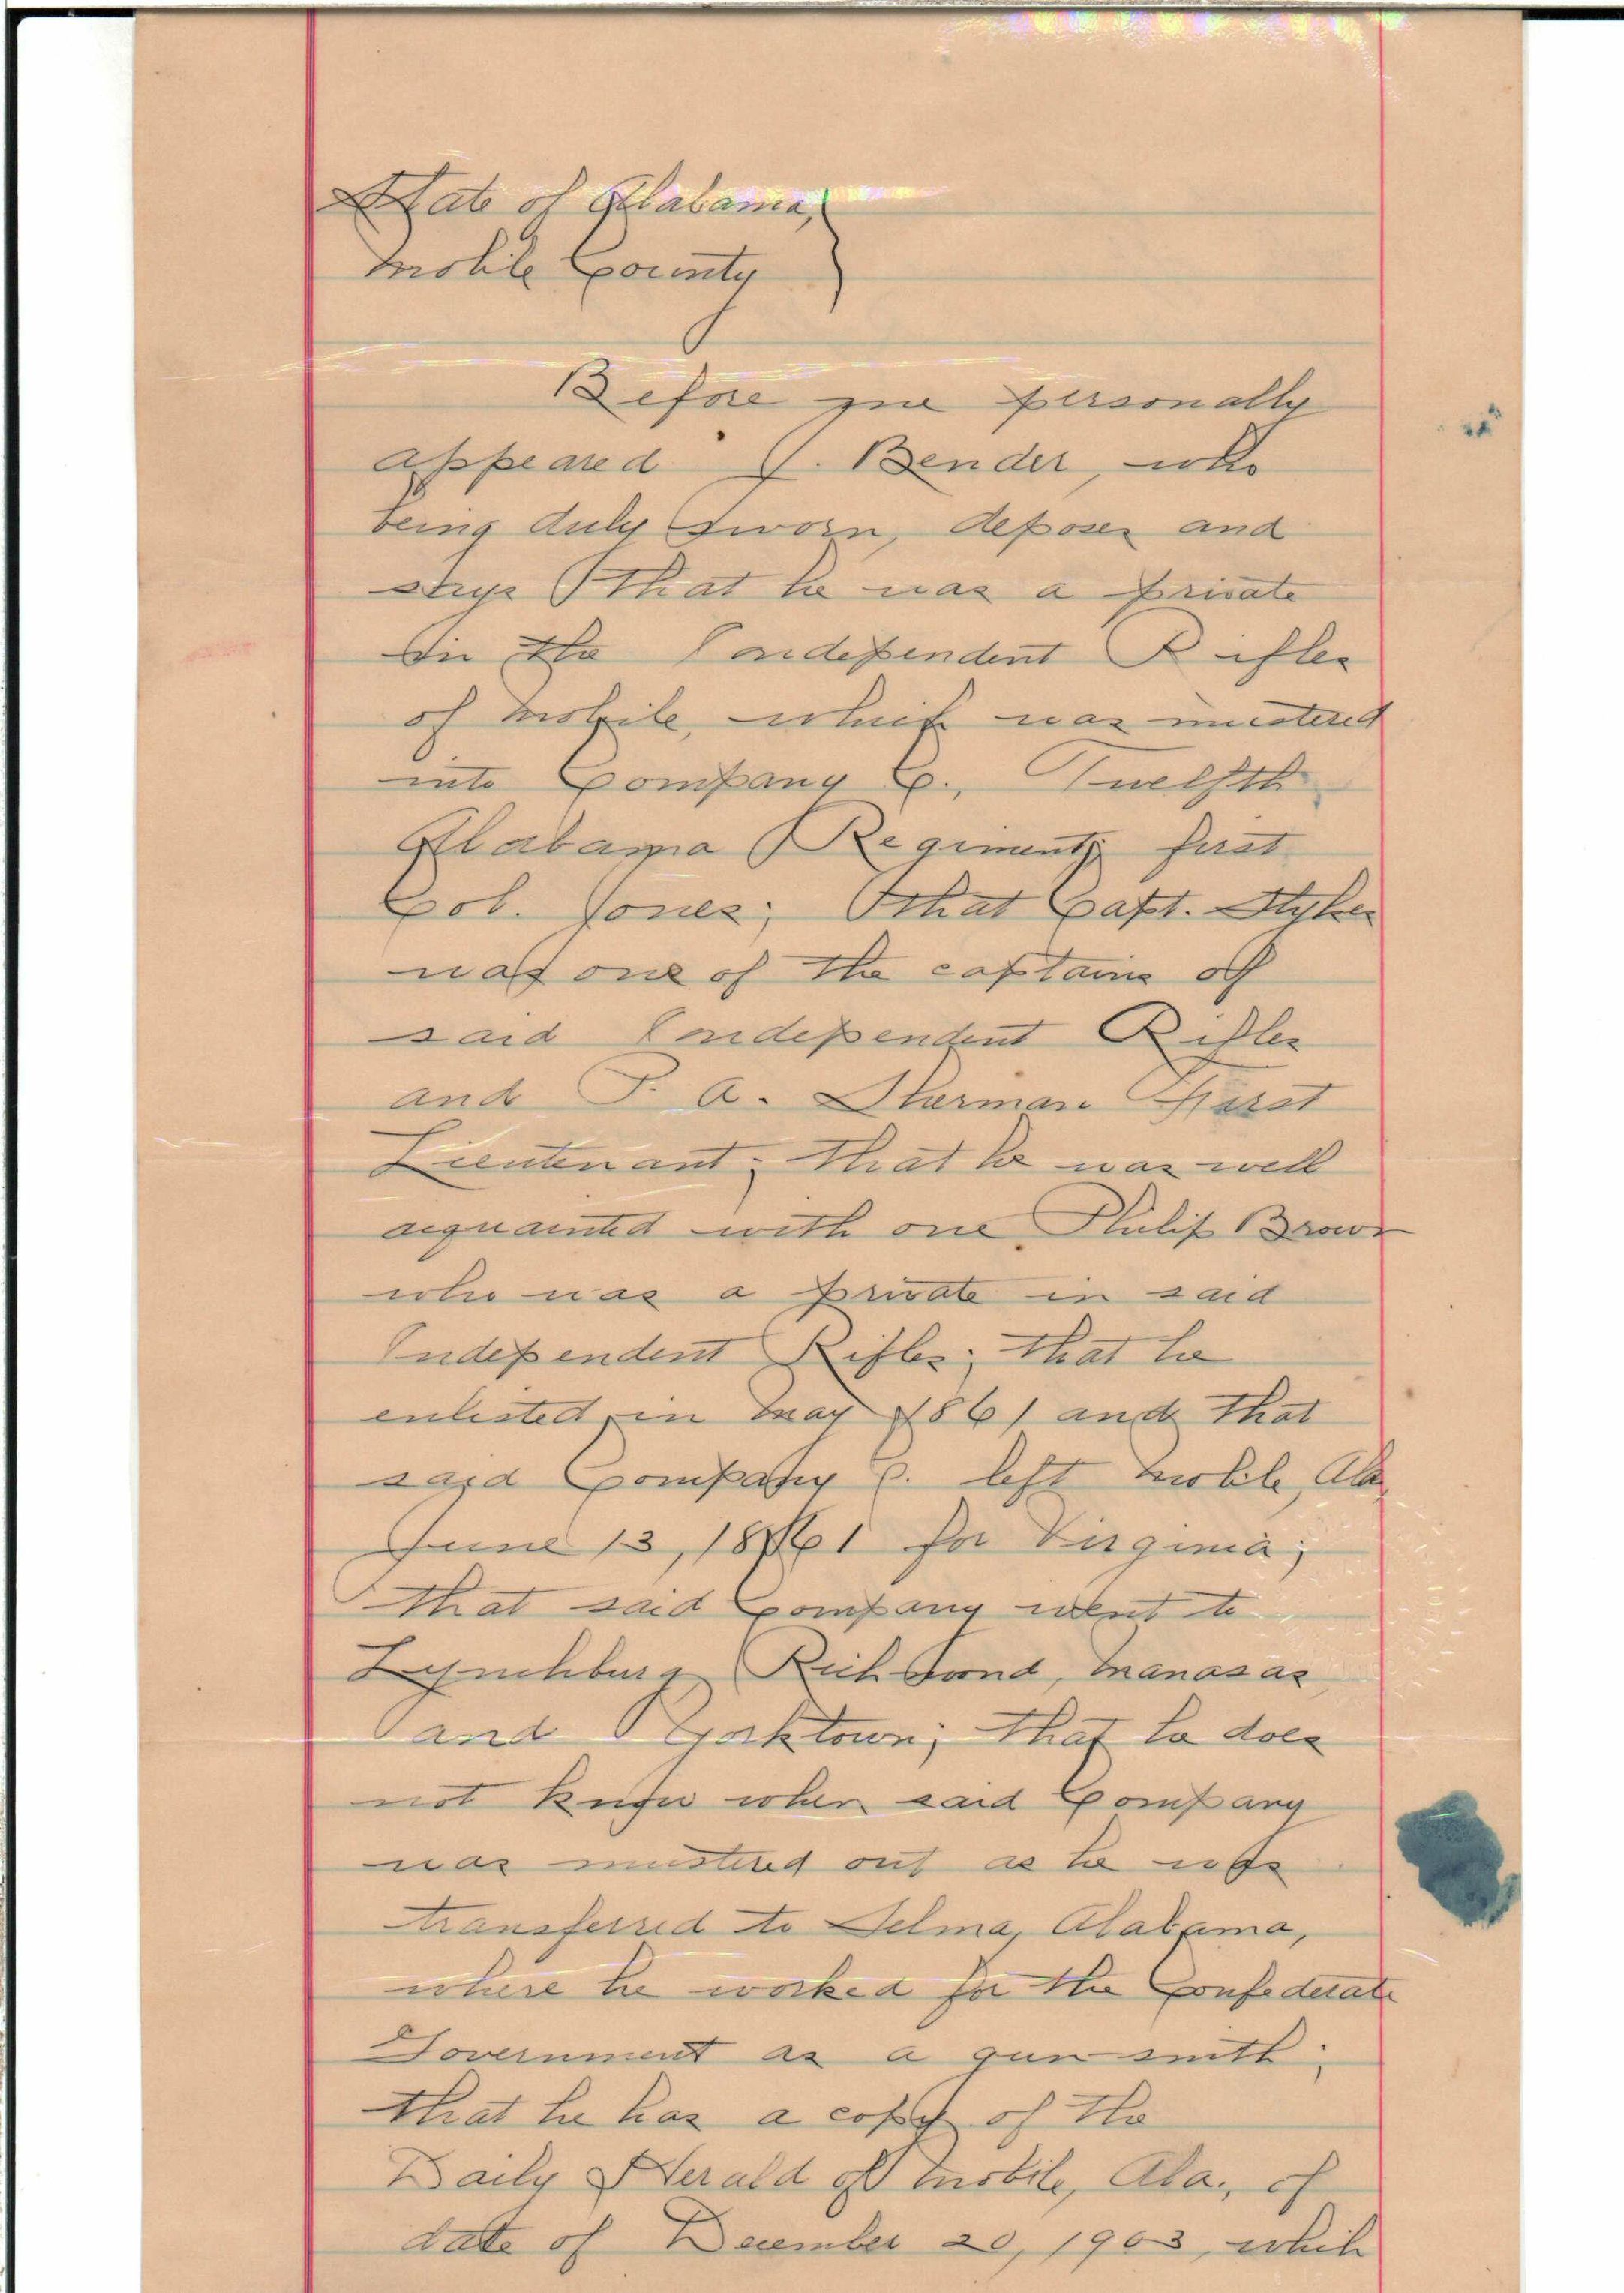 State of Alabama,
Mobile County
Before me personally
appeared J. Bender, who
being duly sworn, deposes and
says that he was a private
in the Independent Rifles
of Mobile, which was mustered
into Company C., Twelfth
Alabama Regiment, first
Col. Jones; that Capt. Stykes
was one of the captains of
said Independent Rifles
and P. A. Sherman First
Lieutenant; that he was well
acquainted with one Philip Brown
who was a private in said
Independent Rifles; that he
enlisted in May 1861 and that
said Company C. left Mobile, Ala,
June 13, 1861 for Virginia;
that said Company went to
Lynchburg, Richmond, Manasas,
and Yorktown; that he does
not know when said Company
was mustered out as he was
transferred to Selma, Alabama,
where he worked for the Confederate
Government as a gun smith;
that he has a copy of the
Daily Herald of Mobile, Ala., of
date of December 20, 1903, which